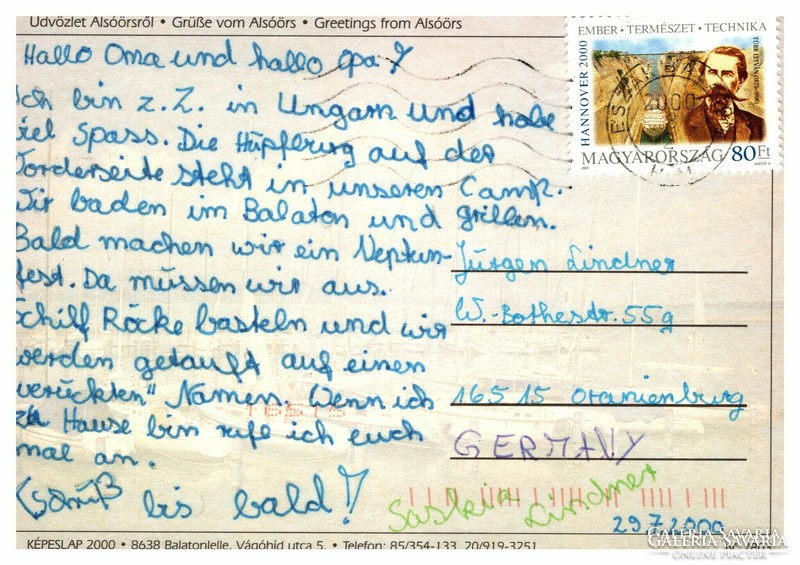 Üdvözlet Alsóörsről • Grüße vom Alsóörs • Greetings from Alsóörs
Hallo Oma und hallo Opa!
Ich bin z.Z. in Ungarn und habe
viel Spass. Die Hüpfburg auf der
Vorderseite steht in unseren Camp.
Wir baden im Balaton und grillen.
Bald machen wir ein Neptun-
fest. Da müssen wir aus
Schilf Röcke basteln und wir
werden getauft auf einen
"verückten" Namen. Wenn ich
zu Hause bin rufe ich euch
mal an.
bis bald!
Saskia Lindner
29.7.2000
EMBER • TERMÉSZET • TECHNIKA
HANNOVER 2000
TÜRR ISTVÁN
MAGYARORSZÁG 80Ft
2000
Jürgen Lindner
W.-Bothestr. 55g
16515 Oranienburg
GERMANY
KÉPESLAP 2000 • 8638 Balatonlelle, Vágóhíd utca 5. • Telefon: 85/354-133, 20/919-3251
GALÉRIA SAVARIA
ONLINE PIACTÉR